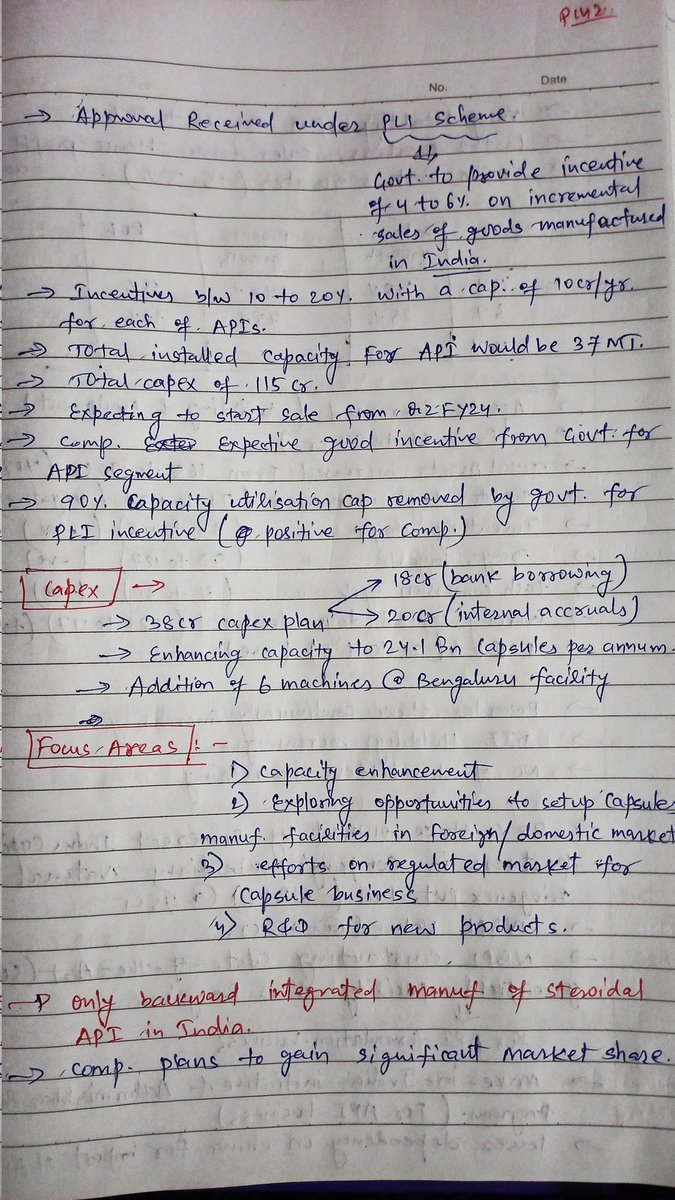 P142
No.
Date
→ Approval Received under PLI Scheme.
Govt. to provide incentive
of 4 to 6% on incremental
sales of goods manufactured
in India.
→ Incentives b/w 10 to 20%. with a cap. of 10cr/yr.
for each of APIs.
→ Total installed capacity for API would be 37 MT.
→ Total capex of 115 cr.
→ Expecting to start sale from Q2FY24.
→ Comp. Expective good incentive from Govt. for
API segment
→ 90%. capacity utilisation cap removed by govt. for
PLI incentive (positive for comp.)
Capex →
→ 38cr capex plan → 18cr (bank borrowing)
→ 20cr (internal accruals)
→ Enhancing capacity to 24.1 Bn Capsules per annum.
→ Addition of 6 machines @ Bengaluru facility
Focus Areas :-
1) capacity enhancement
2) Exploring opportunities to setup capsules
manuf. facilities in foreign/domestic market
3) efforts on regulated market for
capsule business
4) R&D for new products.
→ only backward integrated manuf. of steroidal
API in India.
→ comp. plans to gain significant market share.